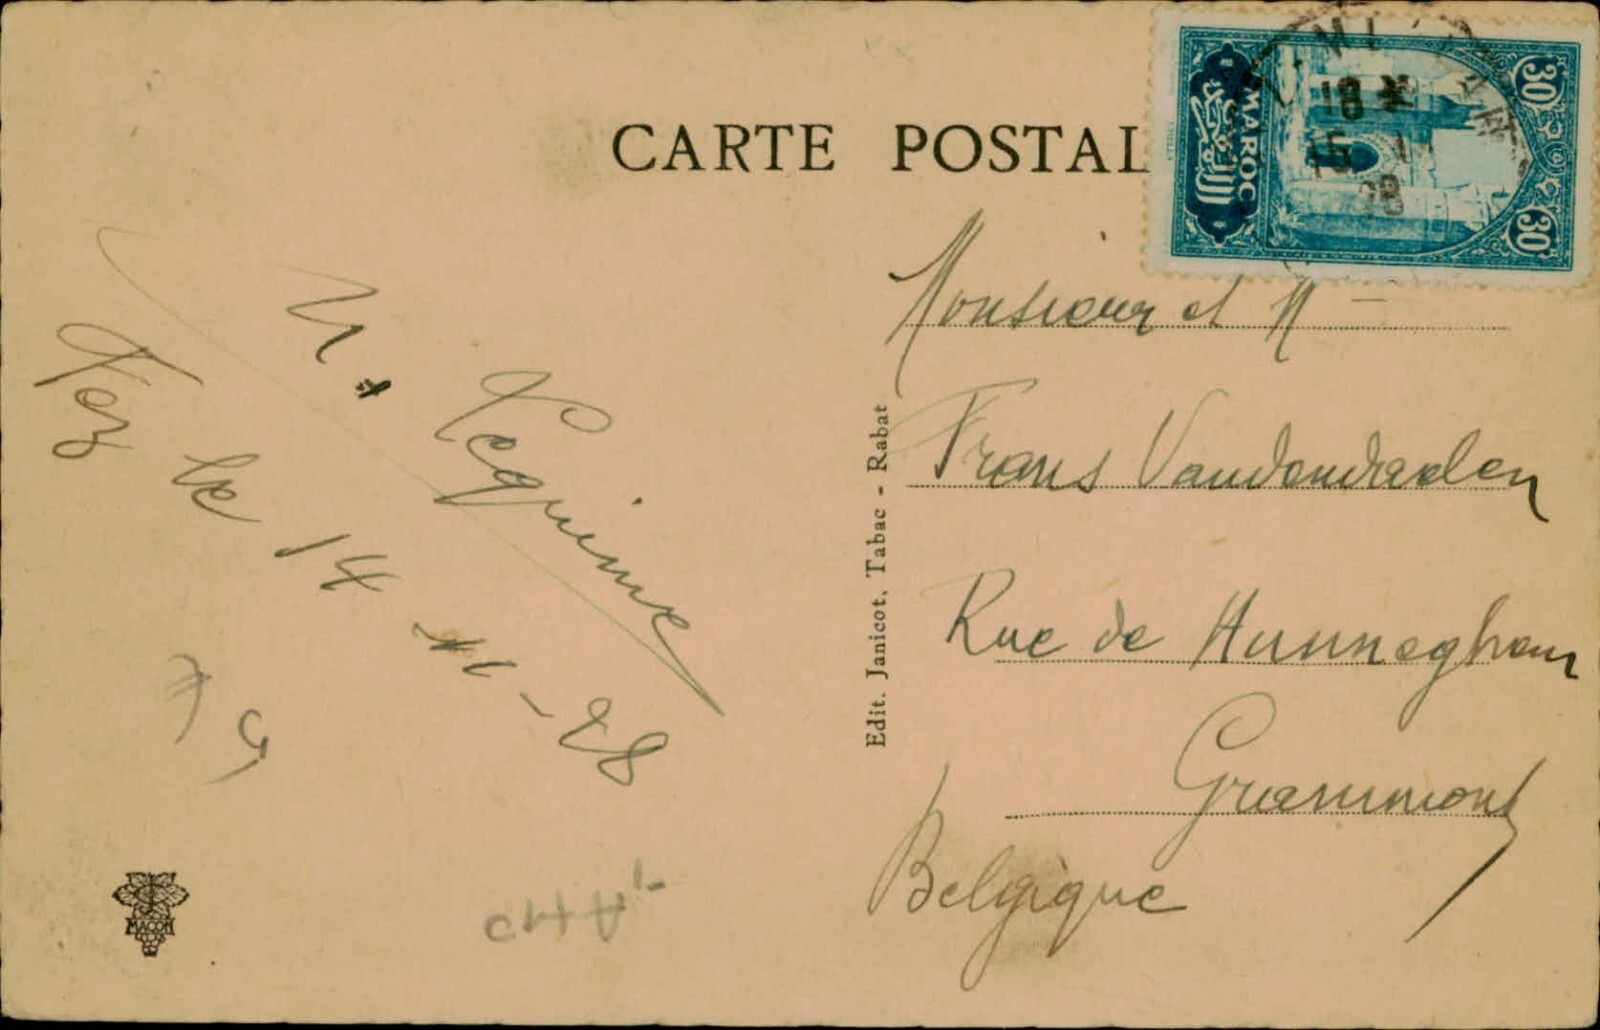 CARTE POSTAL
MAROC
30
30
18
15
28
Fez le 14 11 - 28
Monsieur et M
Frans Vandendaelen
Rue de Hunneghem
Grammont
Belgique
Edit. Janicot, Tabac - Rabat
MACON